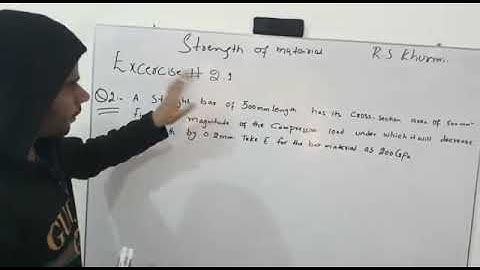 Strength of material
R S Khurmi
Excercise # 2.1
Q2- A Straight bar of 500mm length has its cross-section area of 500mm²
magnitude of the Compressive load under which it will decrease
by 0.2mm Take E for the bar material as 200GPa